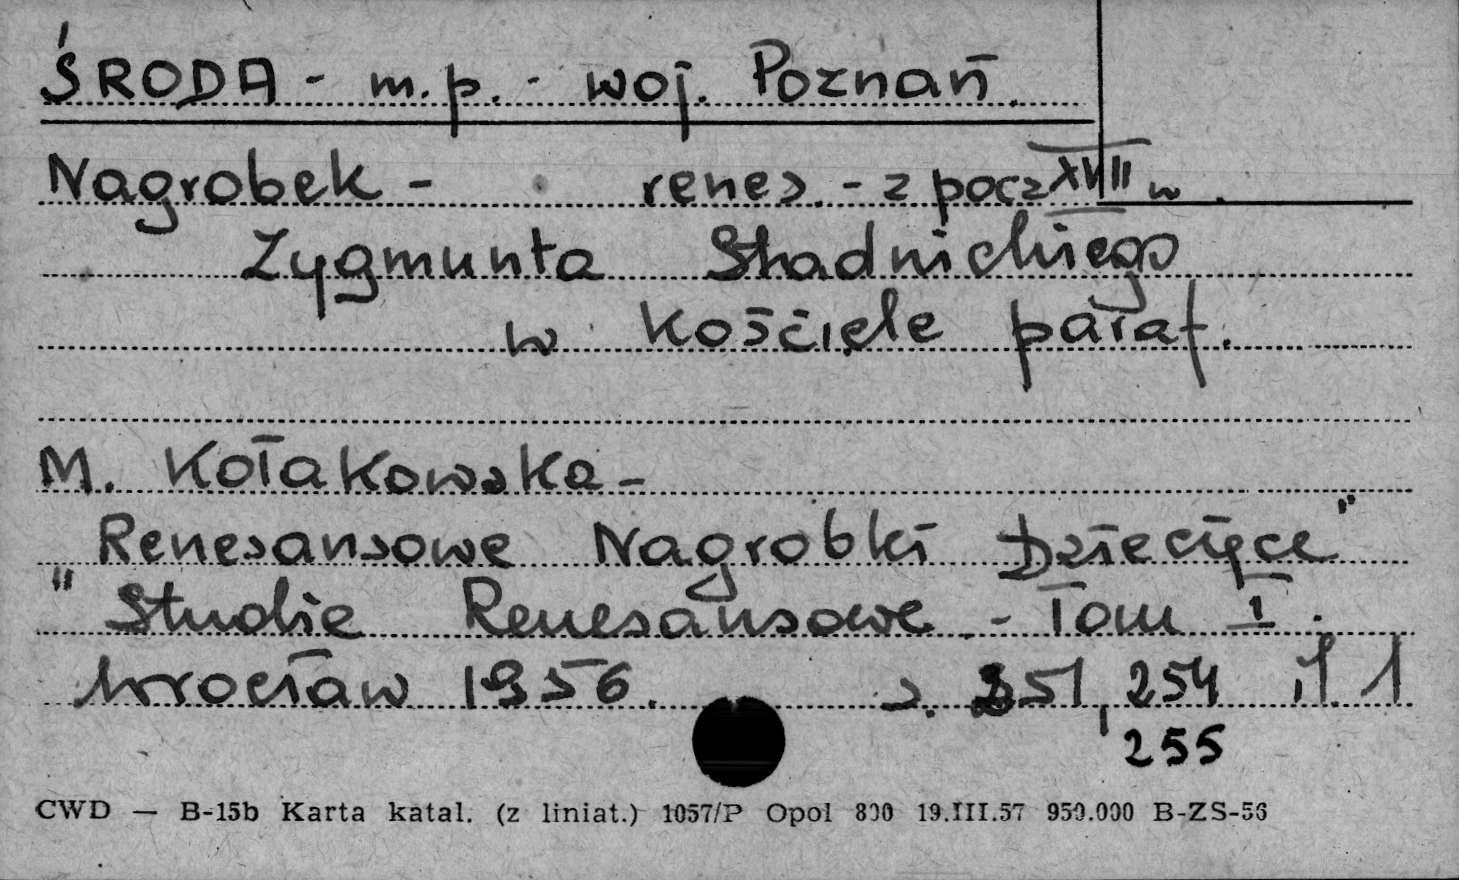 ŚRODA - m.p. - woj. Poznań.
Nagrobek - renes. - z pocz XVII w.
Zygmunta Stadnickiego
w kościele paraf.
M. Kołakowska -
Renesansowe Nagrobki Dziecięce"
"Studia Renesansowe - Tom I.
Wrocław 1956. s. 251, 254 il. 1
255
CWD — B-15b Karta katal. (z liniat.) 1057/P Opol 800 19.III.57 950.000 B-ZS-56